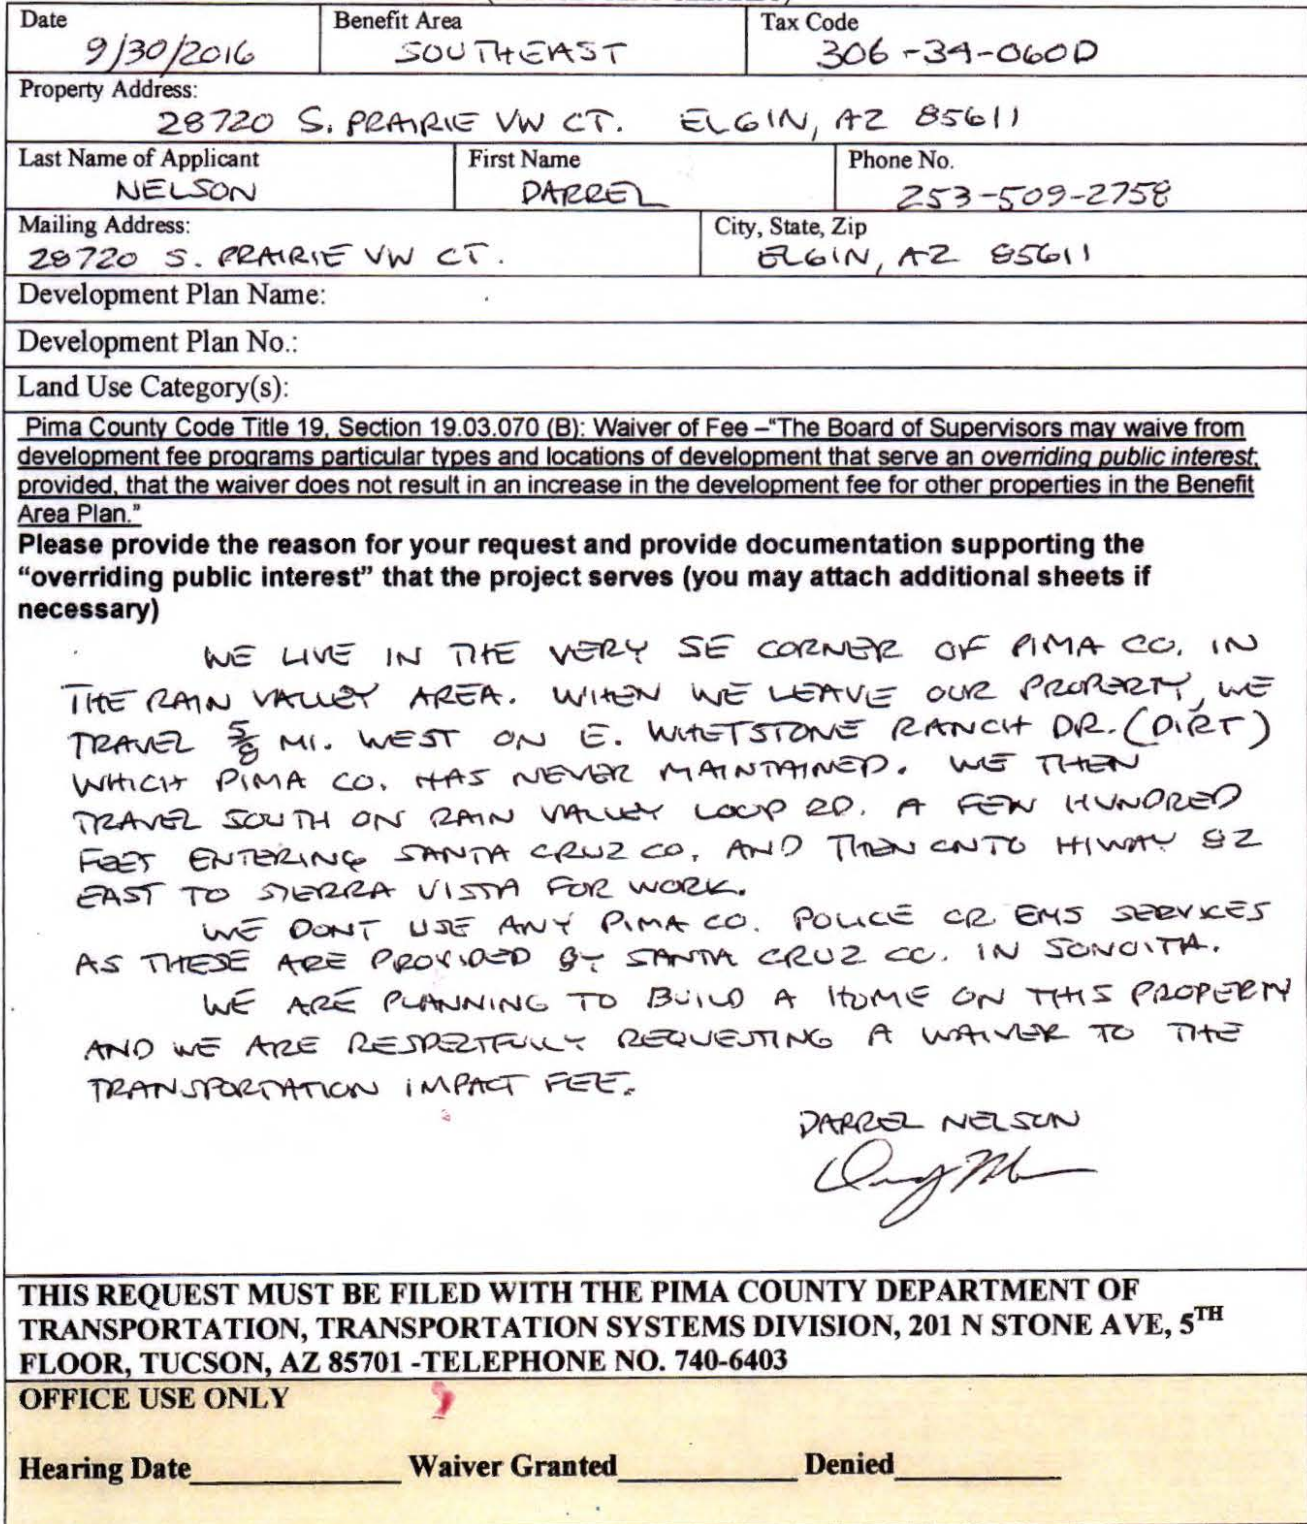 Date
9/30/2016
Benefit Area
SOUTHEAST
Tax Code
306-34-060D
Property Address:
28720 S. PRAIRIE VW CT. ELGIN, AZ 85611
Last Name of Applicant
NELSON
First Name
DARREL
Phone No.
253-509-2758
Mailing Address:
28720 S. PRAIRIE VW CT.
City, State, Zip
ELGIN, AZ 85611
Development Plan Name:
Development Plan No.:
Land Use Category(s):
Pima County Code Title 19, Section 19.03.070 (B): Waiver of Fee –"The Board of Supervisors may waive from
development fee programs particular types and locations of development that serve an overriding public interest;
provided, that the waiver does not result in an increase in the development fee for other properties in the Benefit
Area Plan."
Please provide the reason for your request and provide documentation supporting the
“overriding public interest” that the project serves (you may attach additional sheets if
necessary)
WE LIVE IN THE VERY SE CORNER OF PIMA CO. IN
THE RAIN VALLEY AREA. WHEN WE LEAVE OUR PROPERTY, WE
TRAVEL 5/8 MI. WEST ON E. WHETSTONE RANCH DR. (DIRT)
WHICH PIMA CO. HAS NEVER MAINTAINED. WE THEN
TRAVEL SOUTH ON RAIN VALLEY LOOP RD. A FEW HUNDRED
FEET ENTERING SANTA CRUZ CO. AND THEN ONTO HIWAY 82
EAST TO SIERRA VISTA FOR WORK.
WE DONT USE ANY PIMA CO. POLICE OR EMS SERVICES
AS THESE ARE PROVIDED BY SANTA CRUZ CO. IN SONOITA.
WE ARE PLANNING TO BUILD A HOME ON THIS PROPERTY
AND WE ARE RESPECTFULLY REQUESTING A WAIVER TO THE
TRANSPORTATION IMPACT FEE.
DARREL NELSON
THIS REQUEST MUST BE FILED WITH THE PIMA COUNTY DEPARTMENT OF
TRANSPORTATION, TRANSPORTATION SYSTEMS DIVISION, 201 N STONE AVE, 5TH
FLOOR, TUCSON, AZ 85701 -TELEPHONE NO. 740-6403
OFFICE USE ONLY
Hearing Date____________ Waiver Granted____________ Denied____________